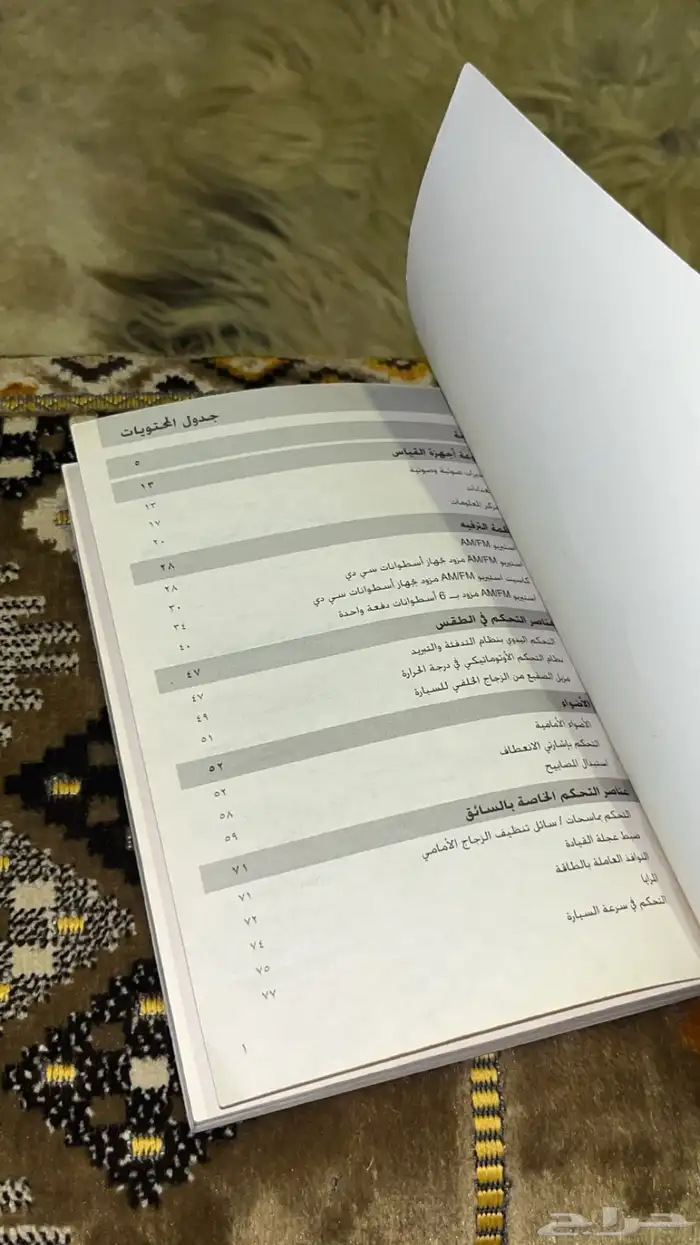 جدول المحتويات
٥
أجهزة القياس ١٣
صوتية وضوئية ١٣
١٧
مركز المعلومات ٢٠
الترفيه ٢٨
استيريو AM/FM ٢٨
استيريو AM/FM مزود بجهاز أسطوانات سي دي ٣٠
كاسيت استيريو AM/FM مزود بجهاز أسطوانات سي دي ٣٤
استيريو AM/FM مزود بـ 6 أسطوانات دفعة واحدة ٤٠
عناصر التحكم في الطقس ٤٧
التحكم اليدوي بنظام التدفئة والتبريد ٤٧
نظام التحكم الأوتوماتيكي في درجة الحرارة ٤٩
مزيل الصقيع من الزجاج الخلفي للسيارة ٥١
الأضواء ٥٢
الأضواء الأمامية ٥٢
التحكم بإشارتي الانعطاف ٥٨
استبدال المصابيح ٥٩
عناصر التحكم الخاصة بالسائق ٧١
التحكم بماسحات / سائل تنظيف الزجاج الأمامي ٧١
ضبط عجلة القيادة ٧٢
النوافذ العاملة بالطاقة ٧٤
المرايا ٧٥
التحكم في سرعة السيارة ٧٧
١
حراج